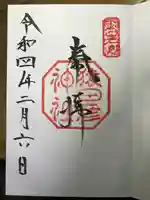 奉拝
猿田彦
神社
令和四年二月六日